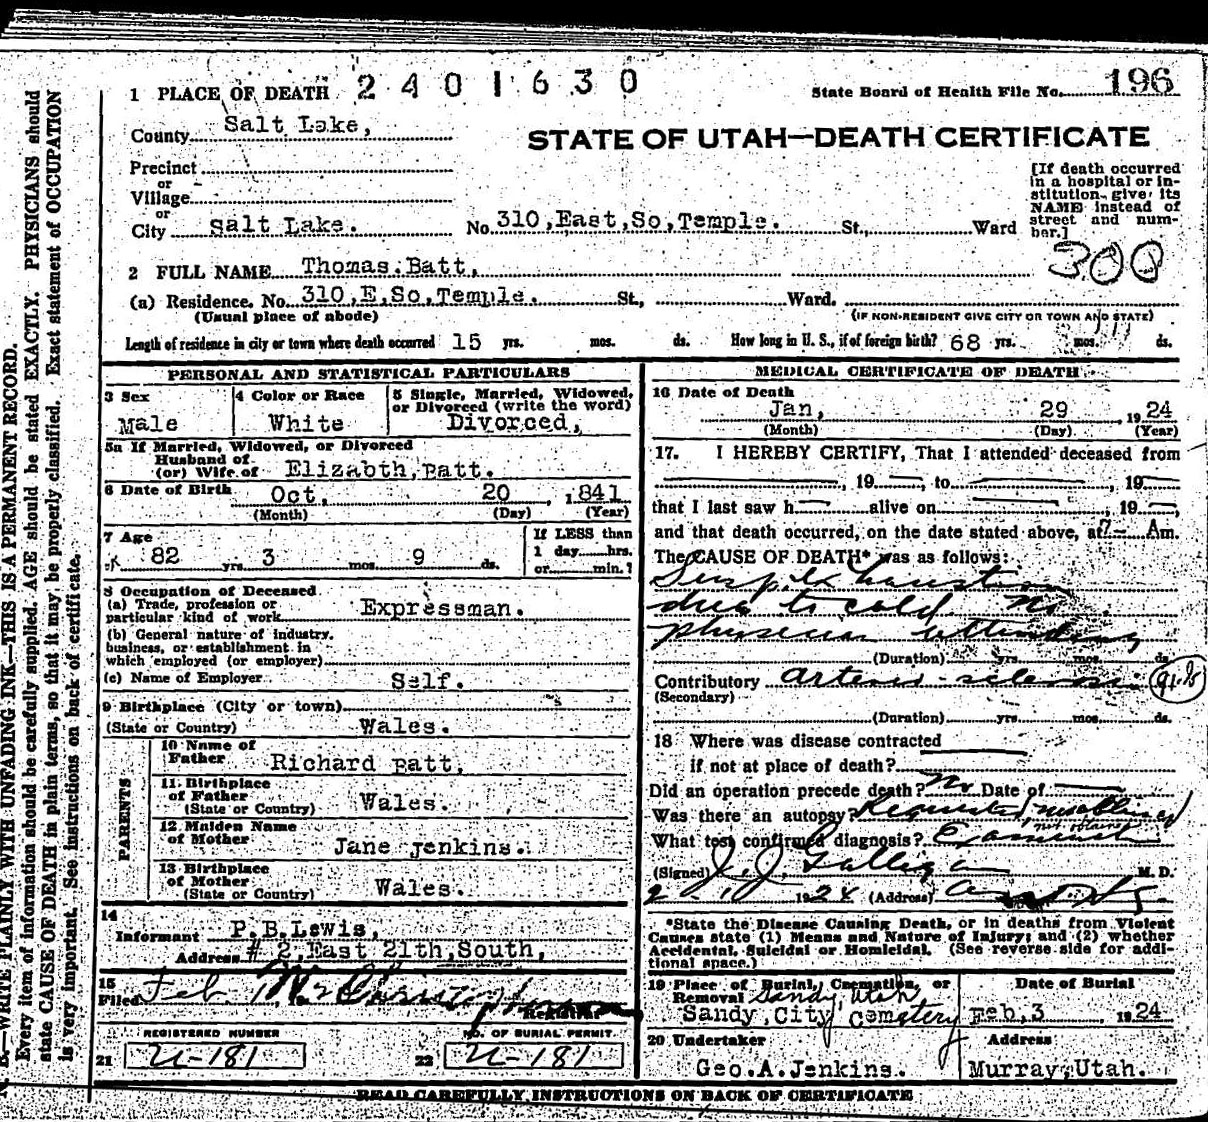 1 PLACE OF DEATH 2401630
State Board of Health File No. 196
County Salt Lake,
STATE OF UTAH—DEATH CERTIFICATE
Precinct
or
Village
or
City Salt Lake. No 310,East,So,Temple. St., Ward
[If death occurred
in a hospital or in-
stitution, give its
NAME instead of
street and num-
ber.]
300
2 FULL NAME Thomas.Batt,
(a) Residence. No. 310,E,So,Temple. St., Ward.
(Usual place of abode)
(IF NON-RESIDENT GIVE CITY OR TOWN AND STATE)
Length of residence in city or town where death occurred 15 yrs. mos. ds. How long in U. S., if of foreign birth? 68 yrs. mos. ds.
PERSONAL AND STATISTICAL PARTICULARS
3 Sex
Male
4 Color or Race
White
5 Single, Married, Widowed,
or Divorced (write the word)
Divorced,
5a If Married, Widowed, or Divorced
Husband of
(or) Wife of Elizabth,Batt.
6 Date of Birth Oct, 20 ,1841
(Month) (Day) (Year)
7 Age
82 yrs. 3 mos. 9 ds.
If LESS than
1 day hrs.
or min.?
8 Occupation of Deceased
(a) Trade, profession or
particular kind of work Expressman.
(b) General nature of industry,
business, or establishment in
which employed (or employer)
(c) Name of Employer Self.
9 Birthplace (City or town)
(State or Country) Wales.
PARENTS
10 Name of
Father Richard Batt,
11 Birthplace
of Father
(State or Country) Wales.
12 Maiden Name
of Mother Jane Jenkins.
13 Birthplace
of Mother
(State or Country) Wales.
14
Informant P.B.Lewis,
Address # 2,East 21th,South,
15
Filed Feb
Registrar
REGISTERED NUMBER
21 U-181
NO. OF BURIAL PERMIT
22 U-181
MEDICAL CERTIFICATE OF DEATH
16 Date of Death
Jan, 29 1924
(Month) (Day) (Year)
17. I HEREBY CERTIFY, That I attended deceased from
, 19 , to , 19
that I last saw h alive on , 19 ,
and that death occurred, on the date stated above, at 7 Am.
The CAUSE OF DEATH* was as follows:
Susp. Exhaustion
due to cold. No
physician attending
(Duration) yrs. mos. ds.
Contributory Arterio-sclerosis 91.b
(Secondary)
(Duration) yrs. mos. ds.
18 Where was disease contracted
if not at place of death?
Did an operation precede death? No Date of
Was there an autopsy? Requested
What test confirmed diagnosis?
(Signed) J. J. Galligan M. D.
1924 (Address)
*State the Disease Causing Death, or in deaths from Violent
Causes state (1) Means and Nature of Injury; and (2) whether
Accidental, Suicidal or Homicidal. (See reverse side for addi-
tional space.)
19 Place of Burial, Cremation, or
Removal Sandy Utah
Sandy,City Cemetery
Date of Burial
Feb,3 1924
20 Undertaker
Geo.A.Jenkins.
Address
Murray,Utah.
READ CAREFULLY INSTRUCTIONS ON BACK OF CERTIFICATE
N. B.—WRITE PLAINLY WITH UNFADING INK—THIS IS A PERMANENT RECORD.
Every item of information should be carefully supplied. AGE should be stated EXACTLY. PHYSICIANS should
state CAUSE OF DEATH in plain terms, so that it may be properly classified. Exact statement of OCCUPATION
is very important. See instructions on back of certificate.